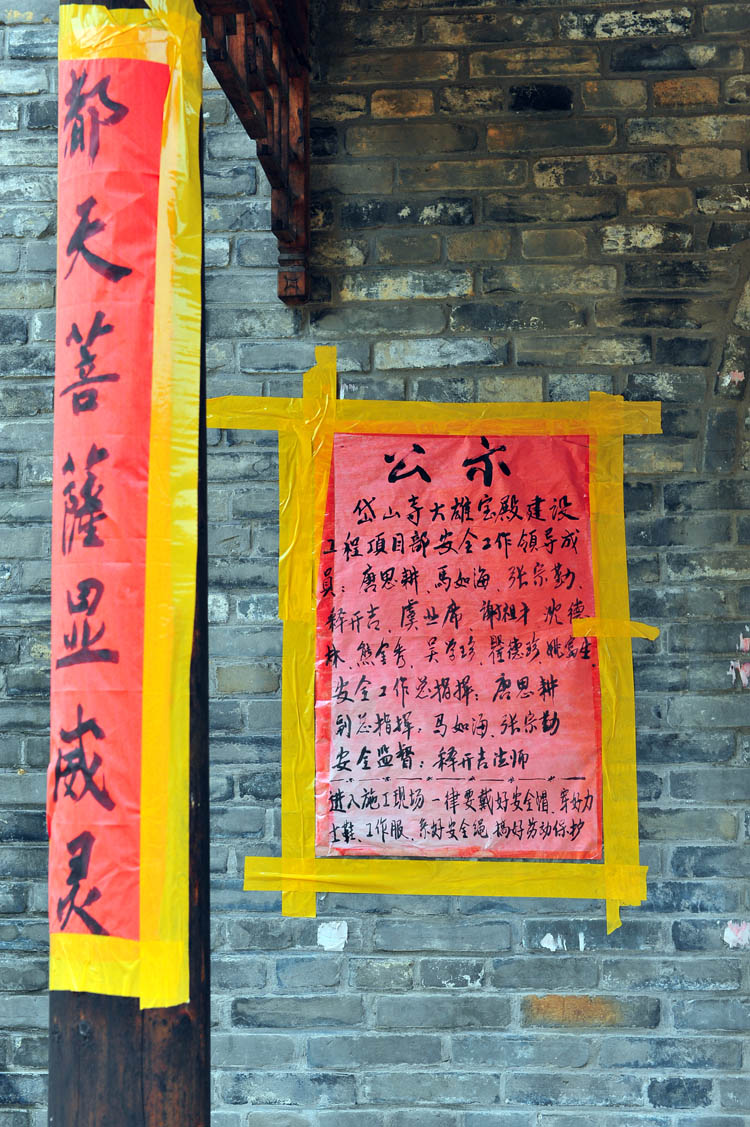 都天菩萨显威灵
公示
岱山寺大雄宝殿建设
工程项目部安全工作领导成
员：唐思耕、马如海、张宗勤、
释开吉、虞业席、谢祖才、沈德
林、熊金秀、吴学珍、瞿德珍、姚富生、
安全工作总指挥：唐思耕
副总指挥，马如海、张宗勤
安全监督：释开吉法师
进入施工现场一律要戴好安全帽、穿好力
士鞋、工作服、系好安全绳、搞好劳动保护